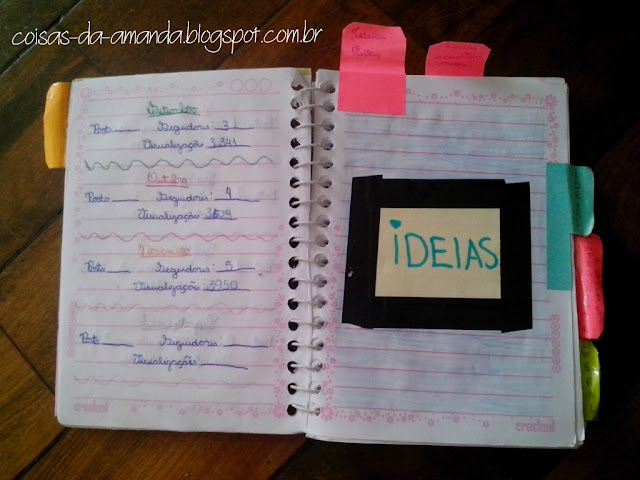 coisas-da-amanda.blogspot.com.br
Setembro
Posts ____ Seguidores: 3
Visualizaçõ 3.341
Outubro
Posts ____ Seguidores: 4
Visualizaçõ:
Novembro
Posts ____ Seguidores: 5
Visualizaçõ: 3950
Posts: ____ Seguidores: ____
Visualizações: ____
credeal
iDEIAS
credeal